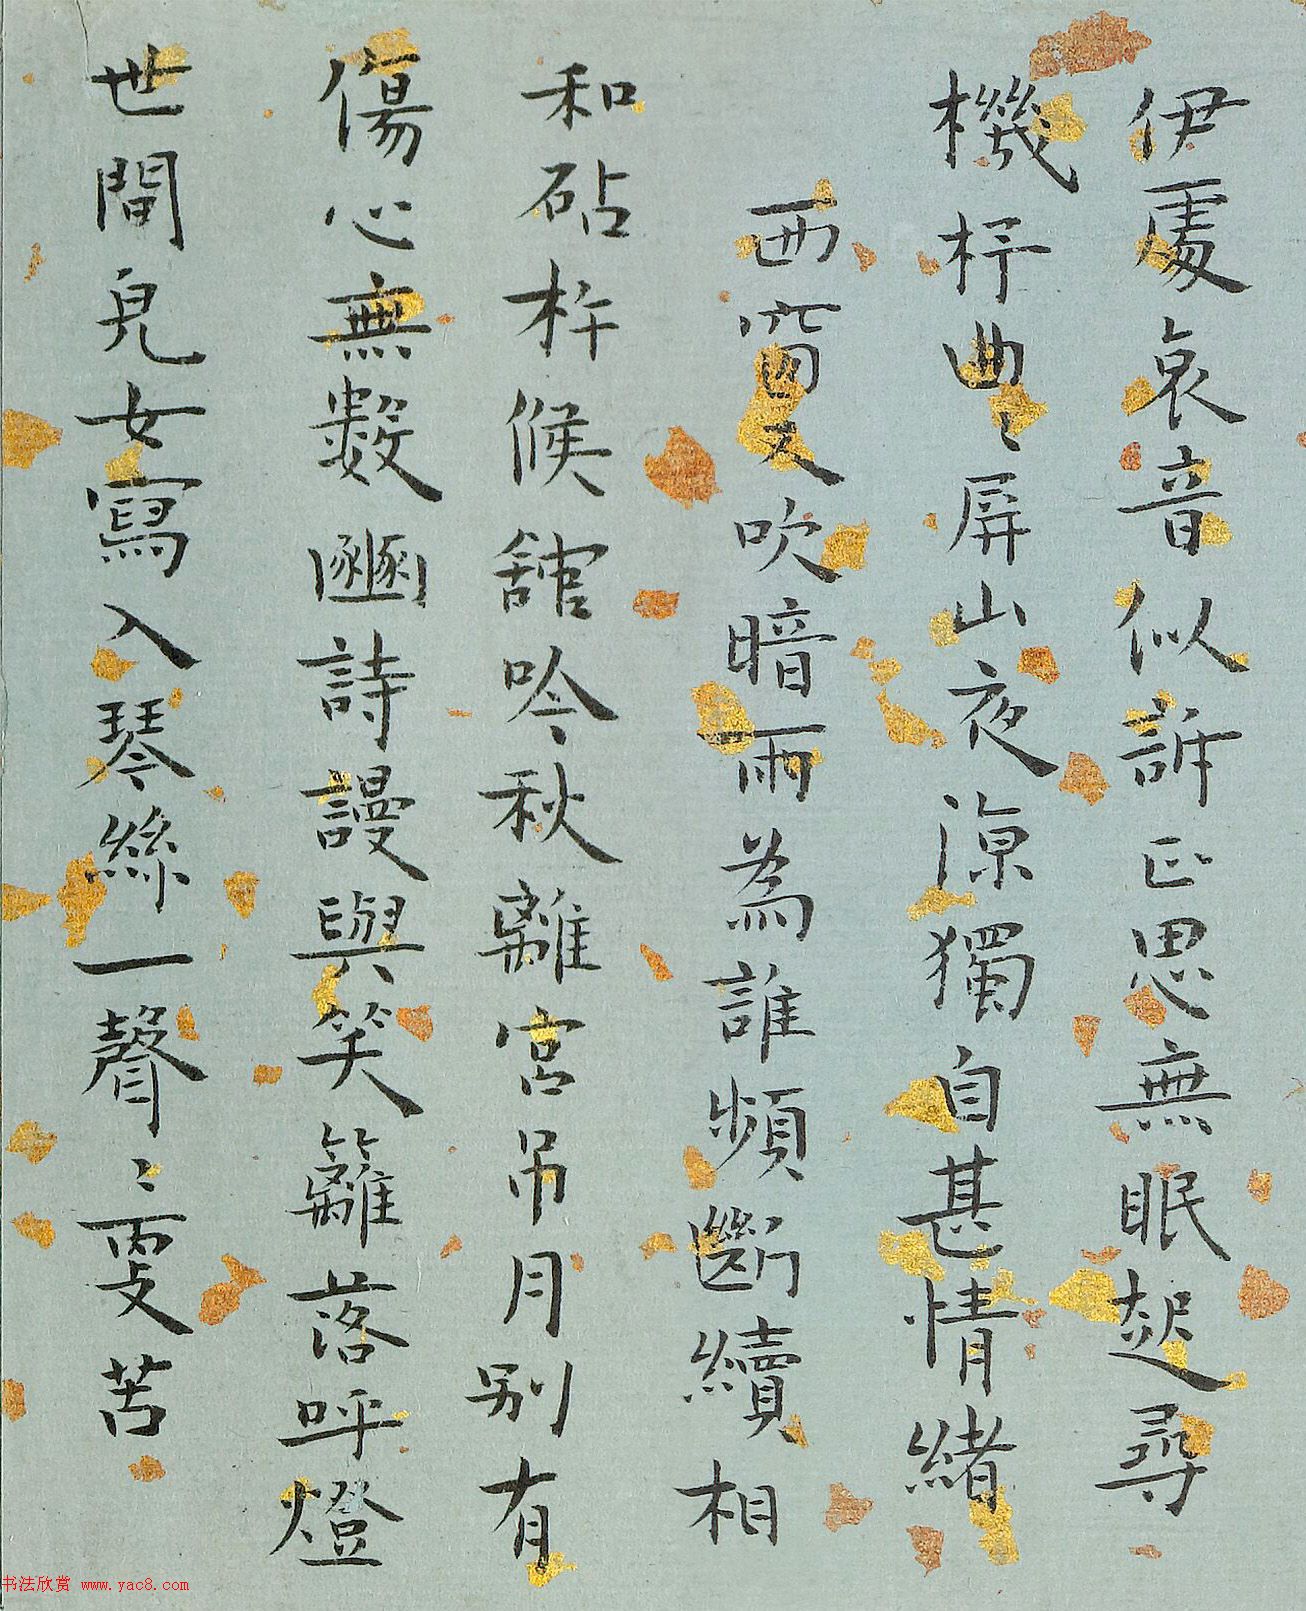 伊處哀音似訴正思無眠起尋
機杼曲〻屏山夜涼獨自甚情緒
西窗又吹暗雨為誰頻斷續相
和砧杵候館吟秋離宮弔月別有
傷心無數豳詩謾與笑籬落呼燈
世間兒女寫入琴絲一聲〻更苦
书法欣赏 www.yac8.com